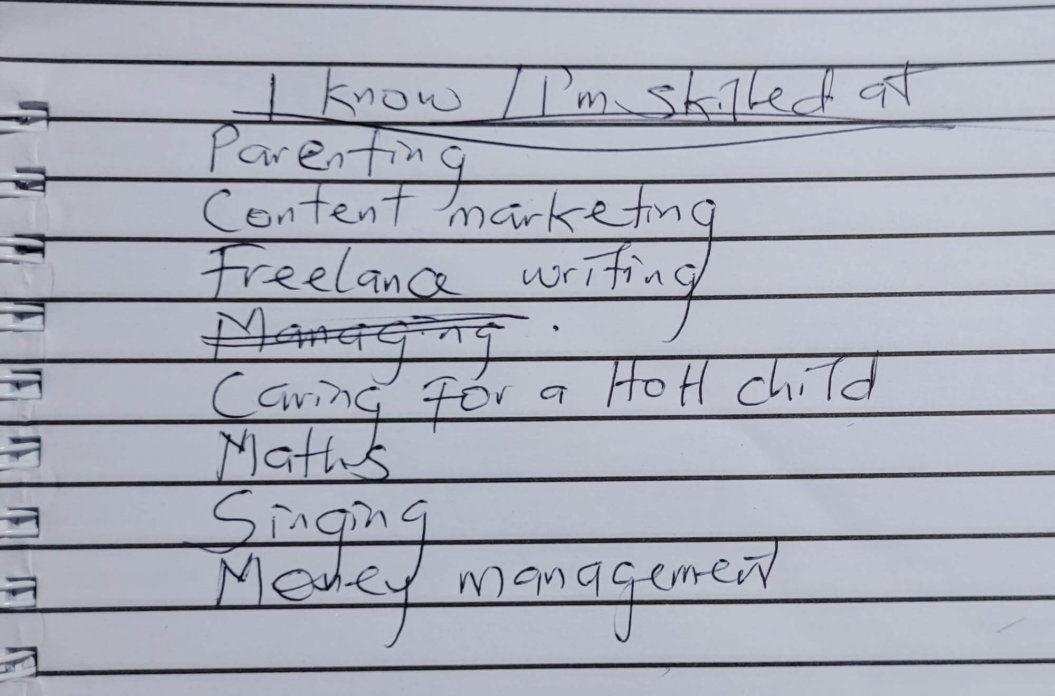 I know / I'm skilled at
Parenting
Content marketing
Freelance writing
Managing .
Caring for a HoH child
Maths
Singing
Money management